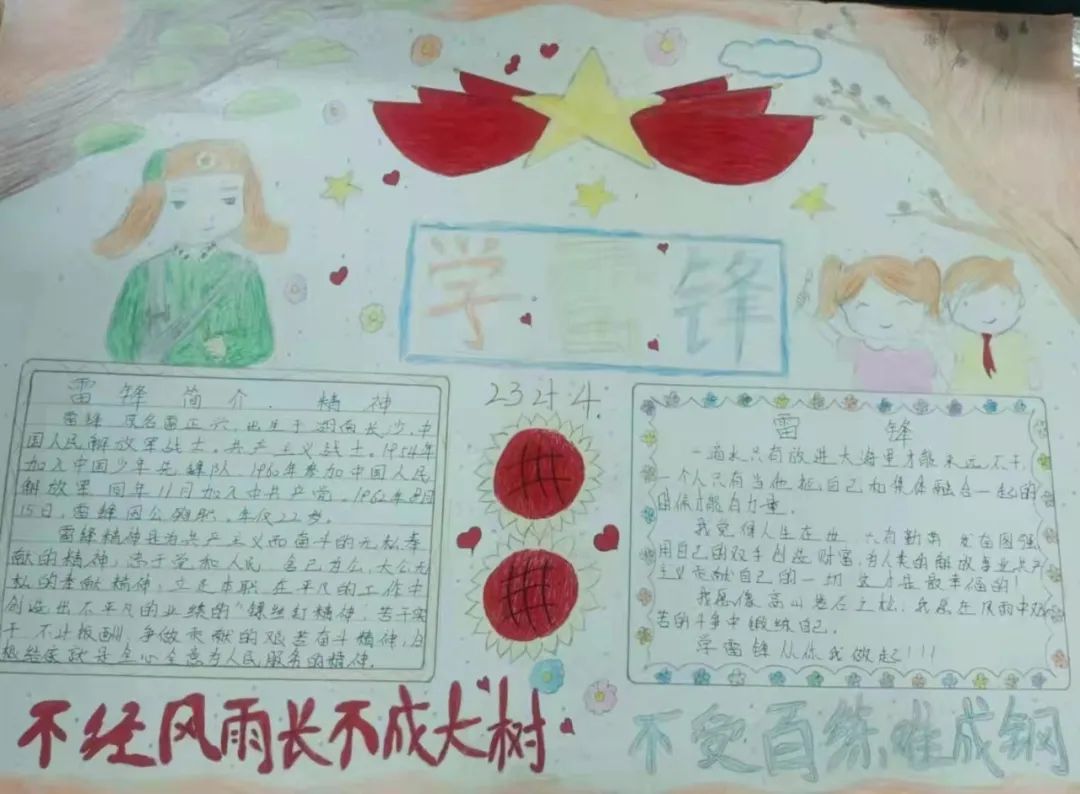 学雷锋
雷锋简介.精神
雷锋 原名雷正兴,出生于湖南长沙,中
国人民解放军战士,共产主义战士。1954年
加入中国少年先锋队,1960年参加中国人民
解放军 同年11月加入中共产党。1962年8月
15日,雷锋因公殉职,年仅22岁。
雷锋精神是为共产主义而奋斗的无私奉
献的精神,忠于党和人民 舍己为公,大公无
私的奉献精神,立足本职 在平凡的工作中
创造出不平凡的业绩的"螺丝钉精神",苦干实
干 不计报酬,争做贡献的艰苦奋斗精神,归
根结底就是全心全意为人民服务的精神.
雷锋
一滴水只有放进大海里才能永远不干,
一个人只有当他把自己和集体融合一起的
时候才能有力量.
我觉得人生在世 只有勤劳 发奋图强
用自己的双手创造财富,为人类的解放事业共产
主义贡献自己的一切 这才是最幸福的!
我愿像高山岩石之松,我愿在风雨中艰
苦的斗争中锻练自己.
学雷锋从你我做起!!!
不经风雨长不成大树
不受百练难成钢